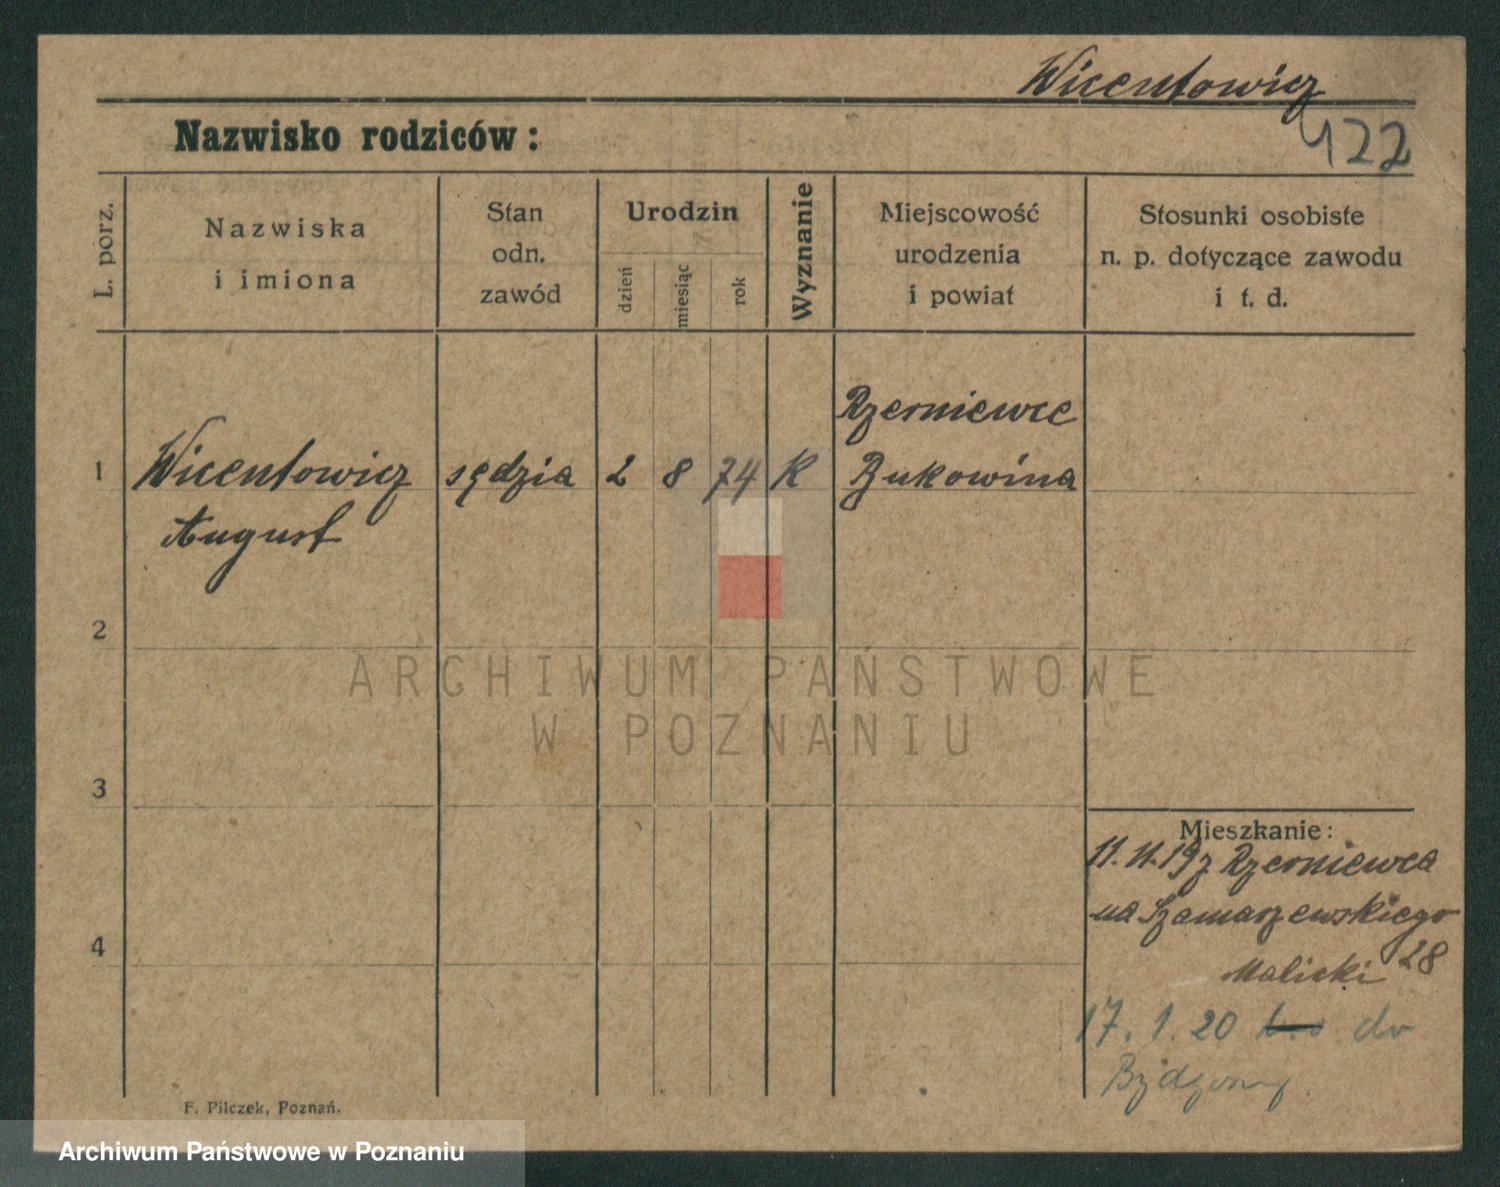 Wicentowicz
Nazwisko rodziców:
422
L. porz.
Nazwiska
i imiona
Stan
odn.
zawód
Urodzin
dzień
miesiąc
rok
Wyznanie
Miejscowość
urodzenia
i powiat
Stosunki osobiste
n. p. dotyczące zawodu
i t. d.
1
Wicentowicz
August
sędzia
2
8
74
K
Rzerniewce
Bukowina
2
3
4
Mieszkanie:
11.11.19 z Rzerniewca
na Szamarzewskiego
28
Malicki
17. 1. 20 do
Bydgoszcz
F. Pilczek, Poznań.
ARCHIWUM PAŃSTWOWE
W POZNANIU
Archiwum Państwowe w Poznaniu